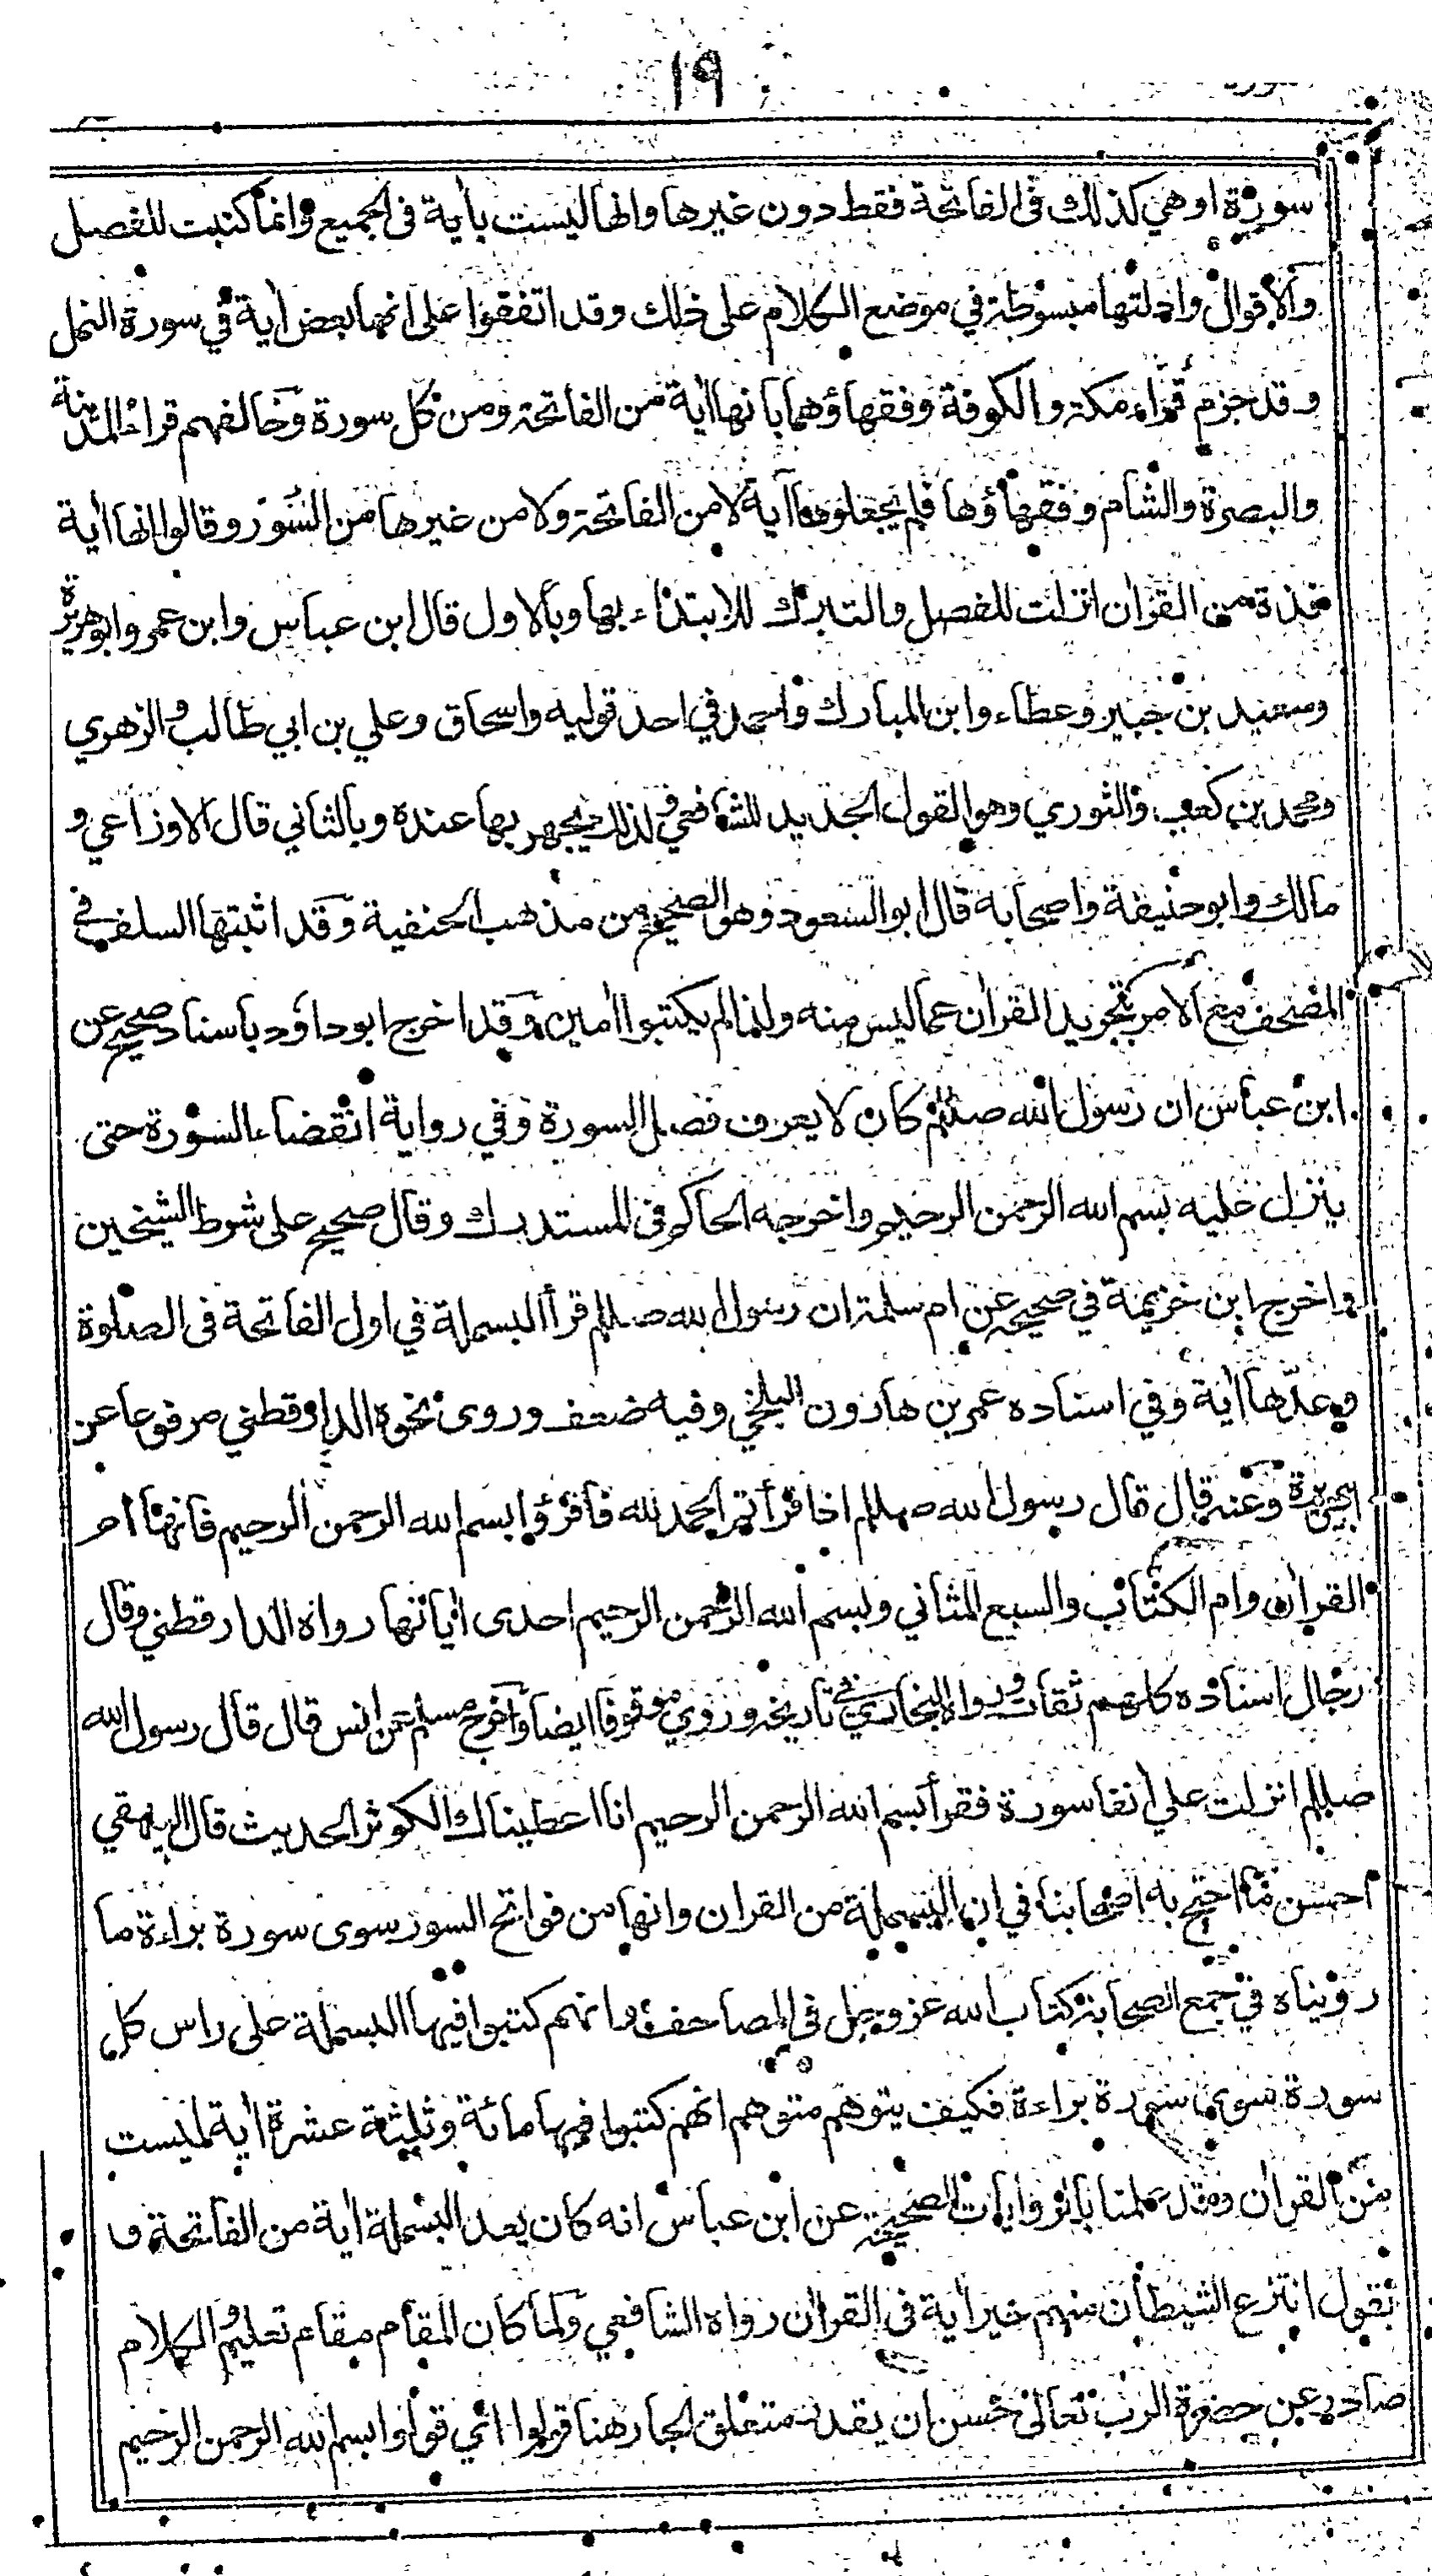 ١٩
سورة او هي كذلك في الفاتحة فقط دون غيرها وانها ليست بأية في الجميع وانما كتبت للفصل
والاقوال وادلتها مبسوطة في موضع الكلام على ذلك وقد اتفقوا على انها بعض أية في سورة النمل
وقد جزم قراء مكة والكوفة وفقهاؤهما بانها أية من الفاتحة ومن كل سورة وخالفهم قراء المدينة
والبصرة والشام وفقهاؤها فلم يجعلوها أية لا من الفاتحة ولا من غيرها من السور وقالوا انها أية
فذة من القرأن انزلت للفصل والتبرك للابتداء بها وبالاول قال ابن عباس وابن عمر وابو هريرة
وسعيد بن جبير وعطاء وابن المبارك واحمد في احد قوليه واسحاق وعلي بن ابي طالب والزهري
ومحمد بن كعب والثوري وهو القول الجديد للشافعي ولذلك يجهر بها عنده وبالثاني قال الاوزاعي و
مالك وابو حنيفة واصحابه قال ابو السعود وهو الصحيح من مذهب الحنفية وقد اثبتها السلف في
المصحف مع الامر بتجريد القرأن عما ليس منه ولذا لم يكتبوا أمين وقد اخرج ابو داود باسناد صحيح عن
ابن عباس ان رسول الله صللم كان لا يعرف فصل السورة وفي رواية انقضاء السورة حتى
ينزل عليه بسم الله الرحمن الرحيم واخرجه الحاكم في المستدرك وقال صحيح على شرط الشيخين
واخرج ابن خزيمة في صحيحه عن ام سلمة ان رسول الله صللم قرأ البسملة في اول الفاتحة في الصلوة
وعدّها أية وفي اسناده عمر بن هارون البلخي وفيه ضعف وروى نحوه الدارقطني مرفوعا عن
ابي هريرة وعنه قال قال رسول الله صللم اذا قرأتم الحمد لله فاقرؤا بسم الله الرحمن الرحيم فانها ام
القرأن وام الكتاب والسبع المثاني وبسم الله الرحمن الرحيم احدى أياتها رواه الدارقطني وقال
رجال اسناده كلهم ثقات ورواه البخاري في تاريخه وروي موقوفا ايضا واخرج مسلم عن انس قال قال رسول الله
صللم انزلت علي أنفا سورة فقرأ بسم الله الرحمن الرحيم انا اعطيناك الكوثر الحديث قال البيهقي
احسن ما احتج به اصحابنا في ان البسملة من القرأن وانها من فواتح السور سوى سورة براءة ما
رويناه في جمع الصحابة كتاب الله عز وجل في المصاحف وانهم كتبوا فيها البسملة على راس كل
سورة سوى سورة براءة فكيف يتوهم متوهم انهم كتبوا فيها مائة وثلثة عشرة أية ليست
من القرأن وقد علمنا بالروايات الصحيحة عن ابن عباس انه كان يعد البسملة أية من الفاتحة و
يقول انتزع الشيطان منهم خير أية في القرأن رواه الشافعي ولما كان المقام مقام تعليم والكلام
صادر عن حضرة الرب تعالى حسن ان يقدر متعلق الجار هنا قولوا اي قولوا بسم الله الرحمن الرحيم